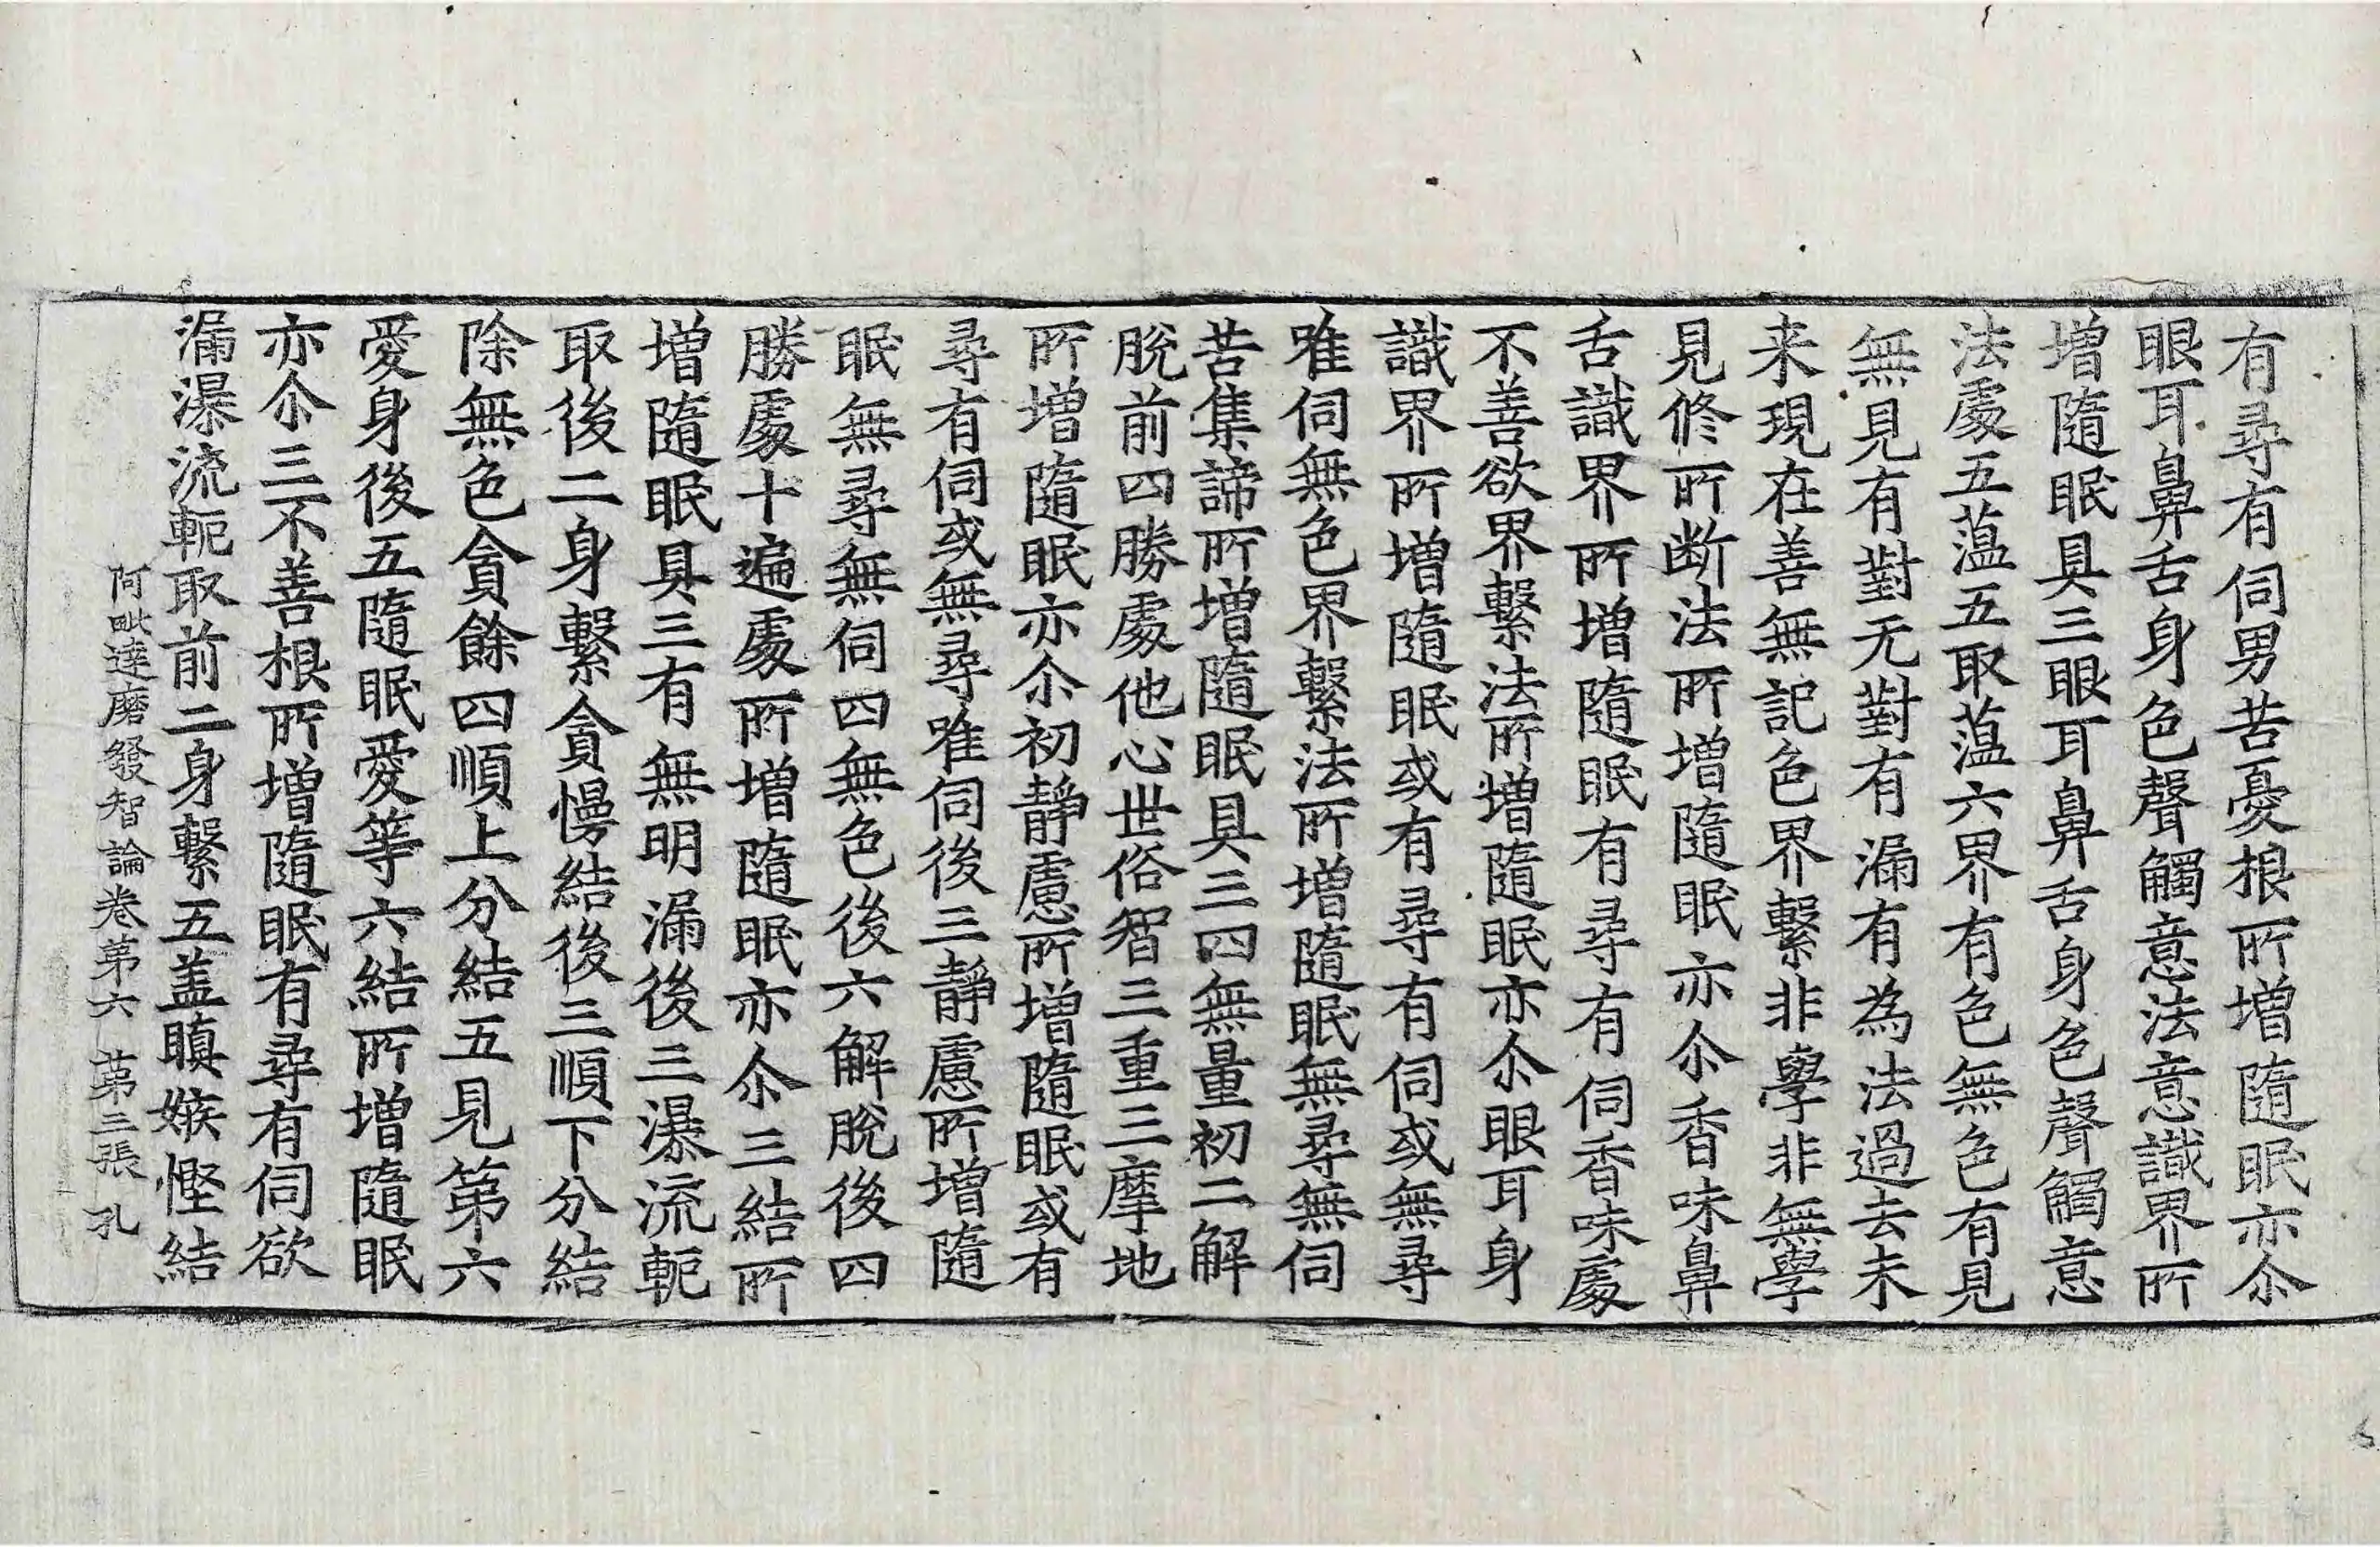 有尋有伺男苦憂根所增隨眠亦尒
眼耳鼻舌身色聲觸意法意識界所
增隨眠具三眼耳鼻舌身色聲觸意
法處五蕰五取蕰六界有色無色有見
無見有對无對有漏有為法過去未
来現在善無記色界繫非學非無學
見修所断法所增隨眠亦尒香味鼻
舌識界所增隨眠有尋有伺香味處
不善欲界繫法所增隨眠亦尒眼耳身
識界所增隨眠或有尋有伺或無尋
唯伺無色界繫法所增隨眠無尋無伺
苦集諦所增隨眠具三四無量初二解
脫前四勝處他心世俗智三重三摩地
所增隨眠亦尒初靜慮所增隨眠或有
尋有伺或無尋唯伺後三靜慮所增隨
眠無尋無伺四無色後六解脫後四
勝處十遍處所增隨眠亦尒三結所
增隨眠具三有無明漏後三瀑流軛
取後二身繫貪慢結後三順下分結
除無色貪餘四順上分結五見第六
愛身後五隨眠愛等六結所增隨眠
亦尒三不善根所增隨眠有尋有伺欲
漏瀑流軛取前二身繫五盖瞋嫉慳結
阿毗達磨發智論卷第六 苐三張 孔